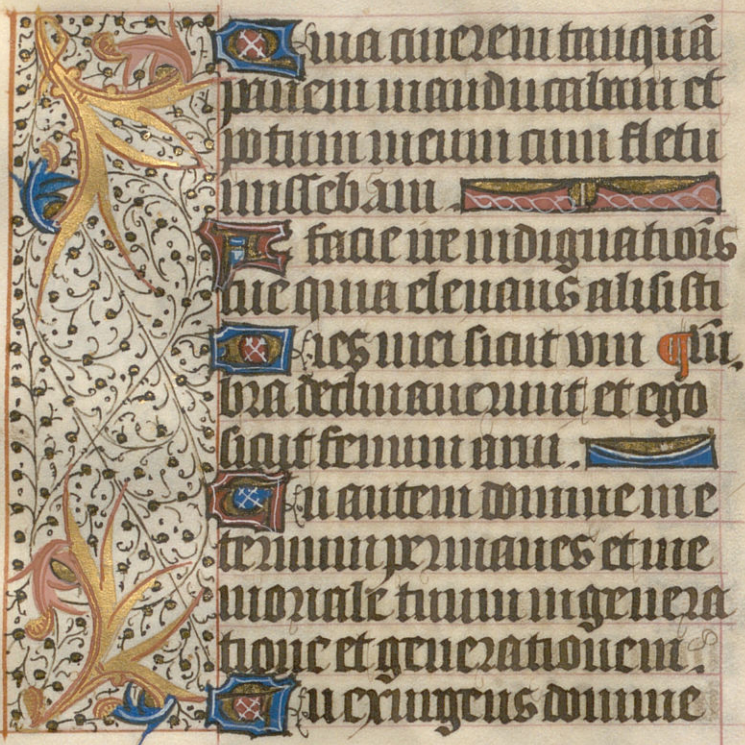 Quia cinerem tanquā
panem manducabam et
potum meum cum fletu
missebam
A facie ire indignatiōis
tue quia eleuans alisisti
Dies mei sicut vm ¶ me.
bra declinauerunt et ego
sicut fenum arui.
Tu autem domine ine
ternum permanes et me
moriale tuum in genera
tione et generationem.
Tu exurgens domine